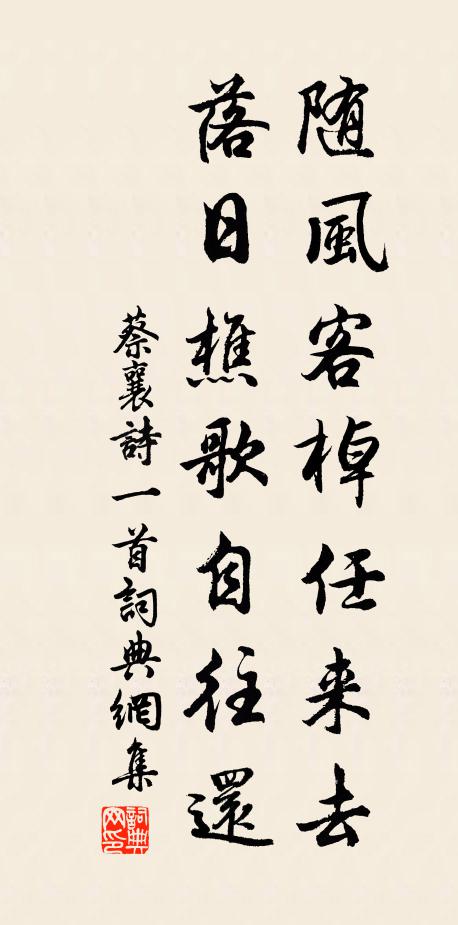 随風客棹任来去
落日樵歌自往還
蔡襄詩一首詞典網集
詞典网印